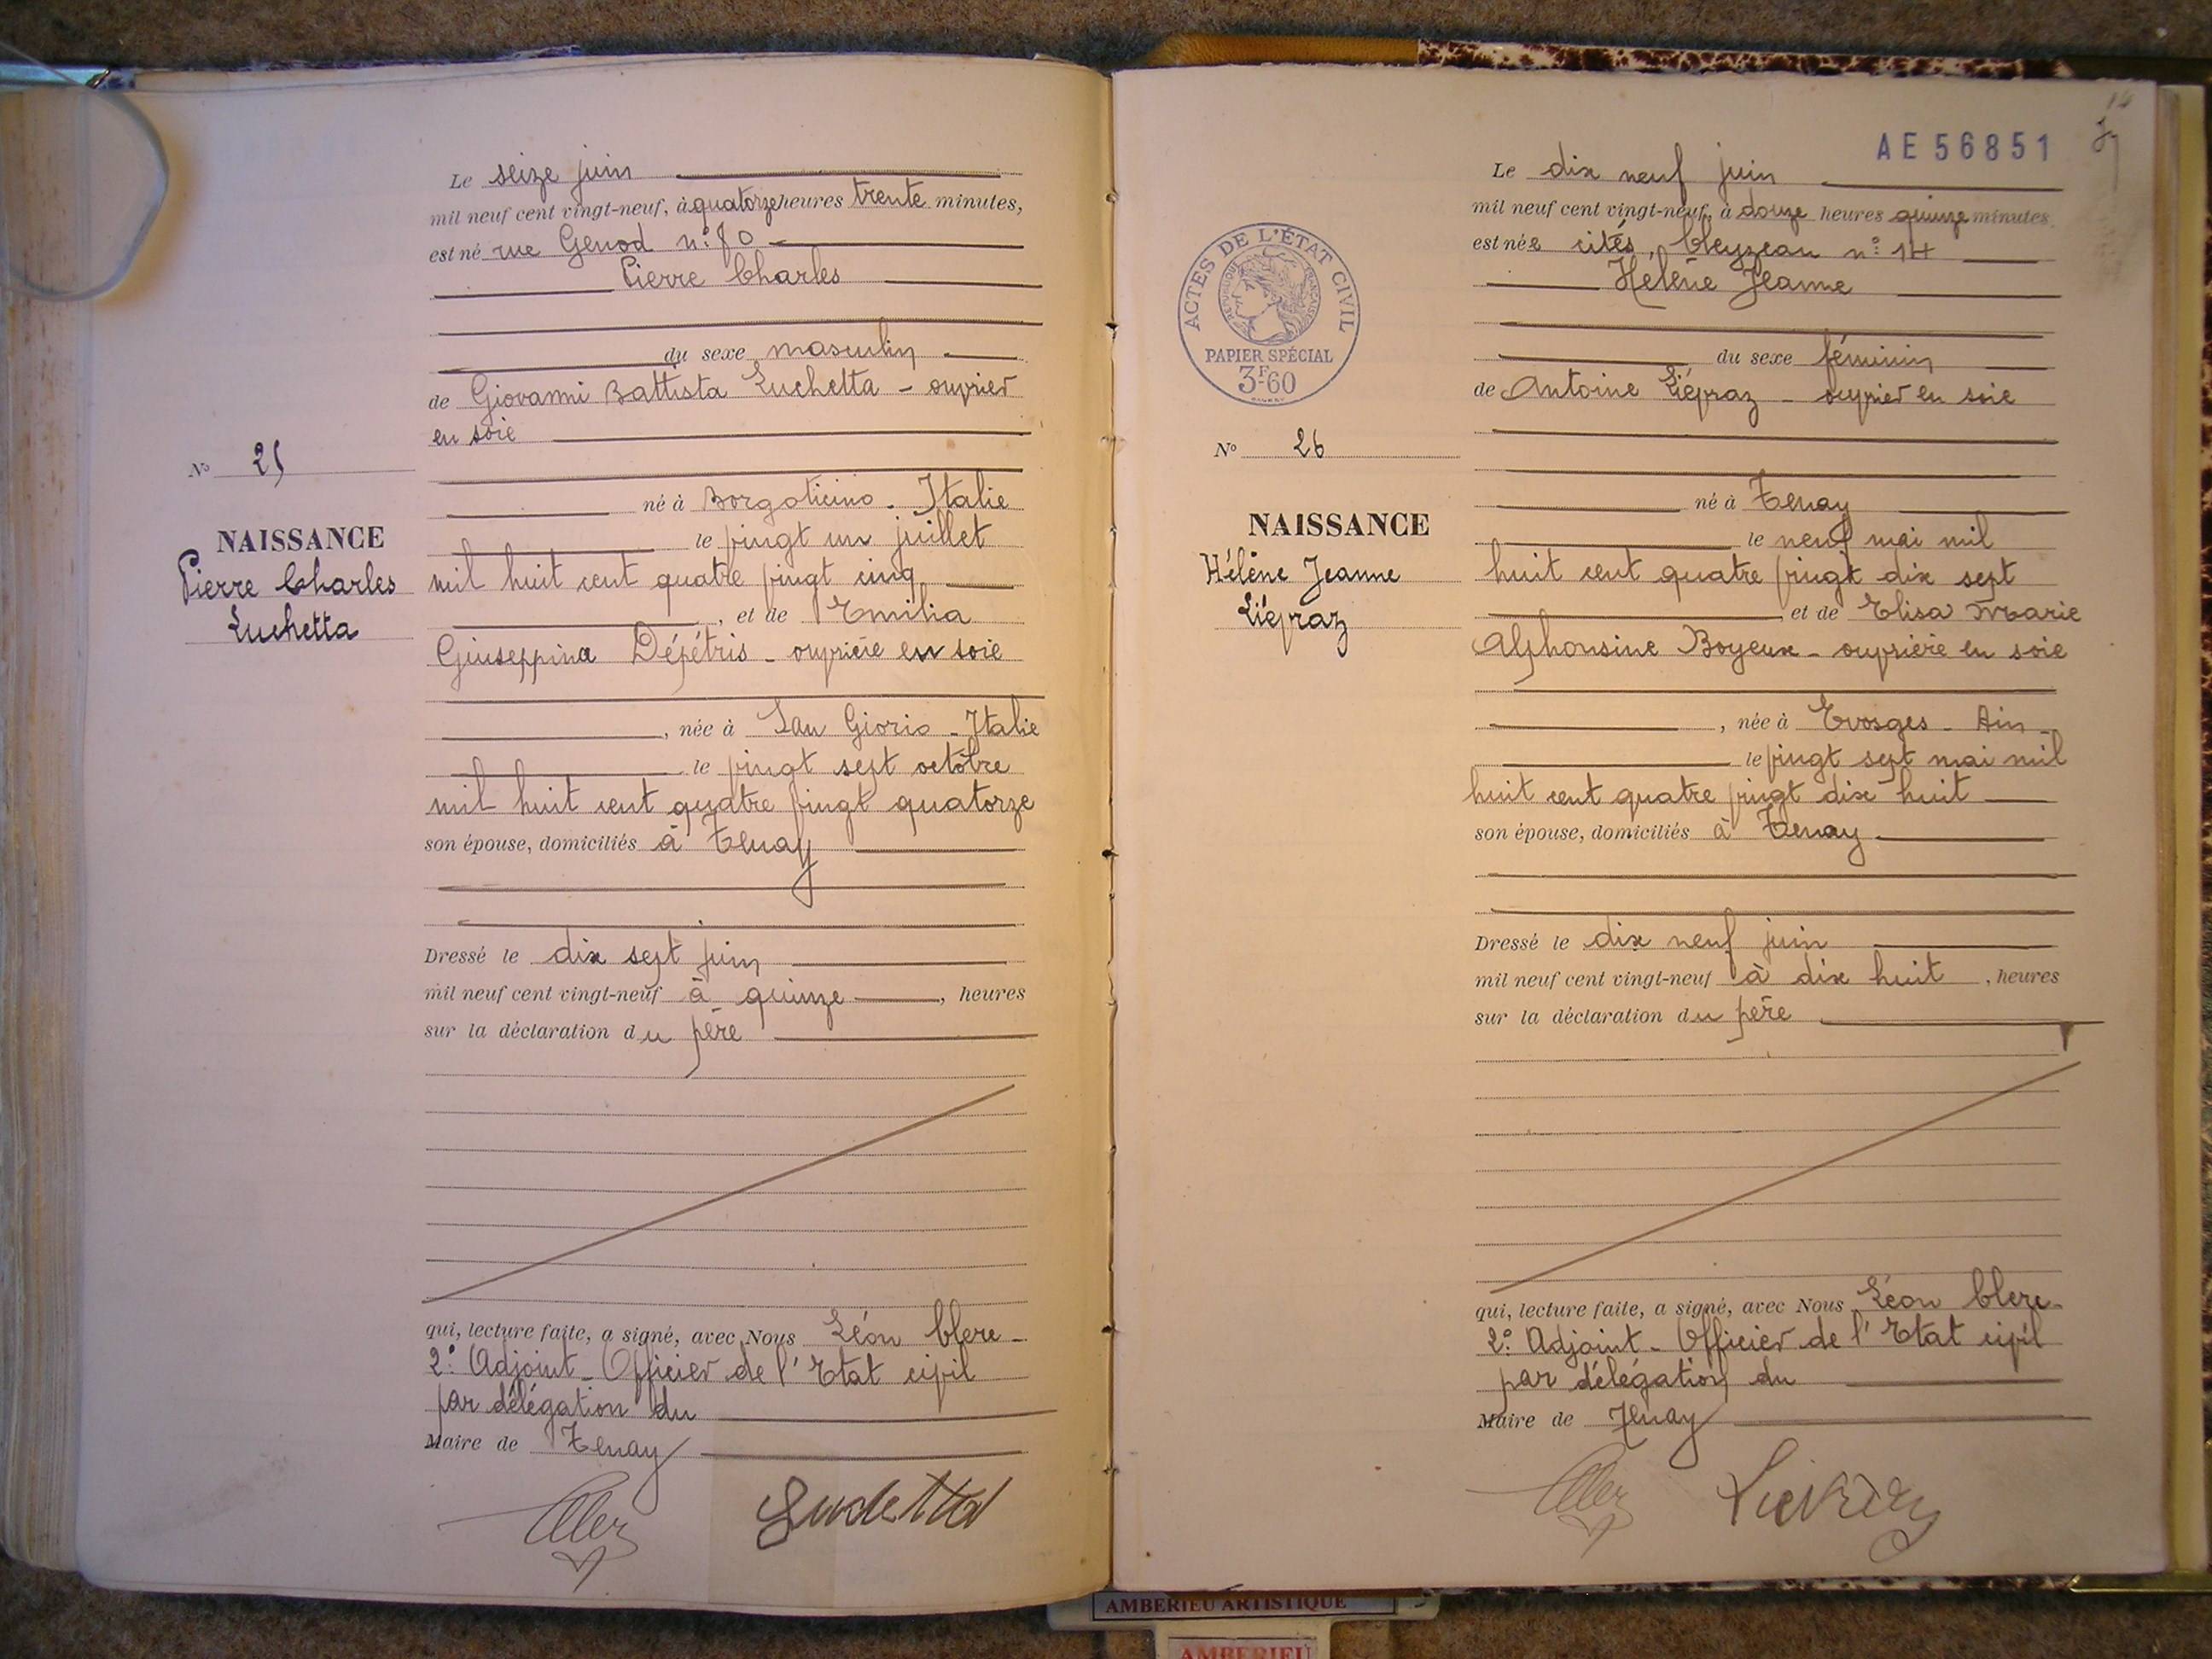 Le seize juin
mil neuf cent vingt-neuf, à quatorze heures trente minutes,
est né rue Genod n°
Pierre Charles
du sexe masculin
de Giovanni Battista Luchetta - ouvrier
en soie
né à Borgoticino - Italie
le vingt un juillet
mil huit cent quatre vingt cinq
, et de Emilia
Giuseppina Dépétris - ouvrière en soie
, née à San Giorio - Italie
le vingt sept octobre
mil huit cent quatre vingt quatorze
son épouse, domiciliés à Tenay
Dressé le dix sept juin
mil neuf cent vingt-neuf à quinze , heures
sur la déclaration du père
qui, lecture faite, a signé, avec Nous Léon Clerc -
2e Adjoint - Officier de l'Etat civil
par délégation du
Maire de Tenay
Luchetta
N° 25
NAISSANCE
Pierre Charles
Luchetta
AE 56851
Le dix neuf juin
mil neuf cent vingt-neuf, à douze heures quinze minutes
est née cités Cleyzeau n° 14
Hélène Jeanne
du sexe féminin
de Antoine Liévraz - ouvrier en soie
né à Tenay
le neuf mai mil
huit cent quatre vingt dix sept
, et de Elisa Marie
Alphonsine Boyeux - ouvrière en soie
, née à Evosges - Ain
le vingt sept mai mil
huit cent quatre vingt dix huit
son épouse, domiciliés à Tenay
Dressé le dix neuf juin
mil neuf cent vingt-neuf à dix huit , heures
sur la déclaration du père
qui, lecture faite, a signé, avec Nous Léon Clerc -
2e Adjoint - Officier de l'Etat civil
par délégation du
Maire de Tenay
ACTES DE L'ÉTAT CIVIL
RÉPUBLIQUE FRANÇAISE
PAPIER SPÉCIAL
3F60
N° 26
NAISSANCE
Hélène Jeanne
Liévraz
AMBERIEU ARTISTIQUE
AMBERIEU